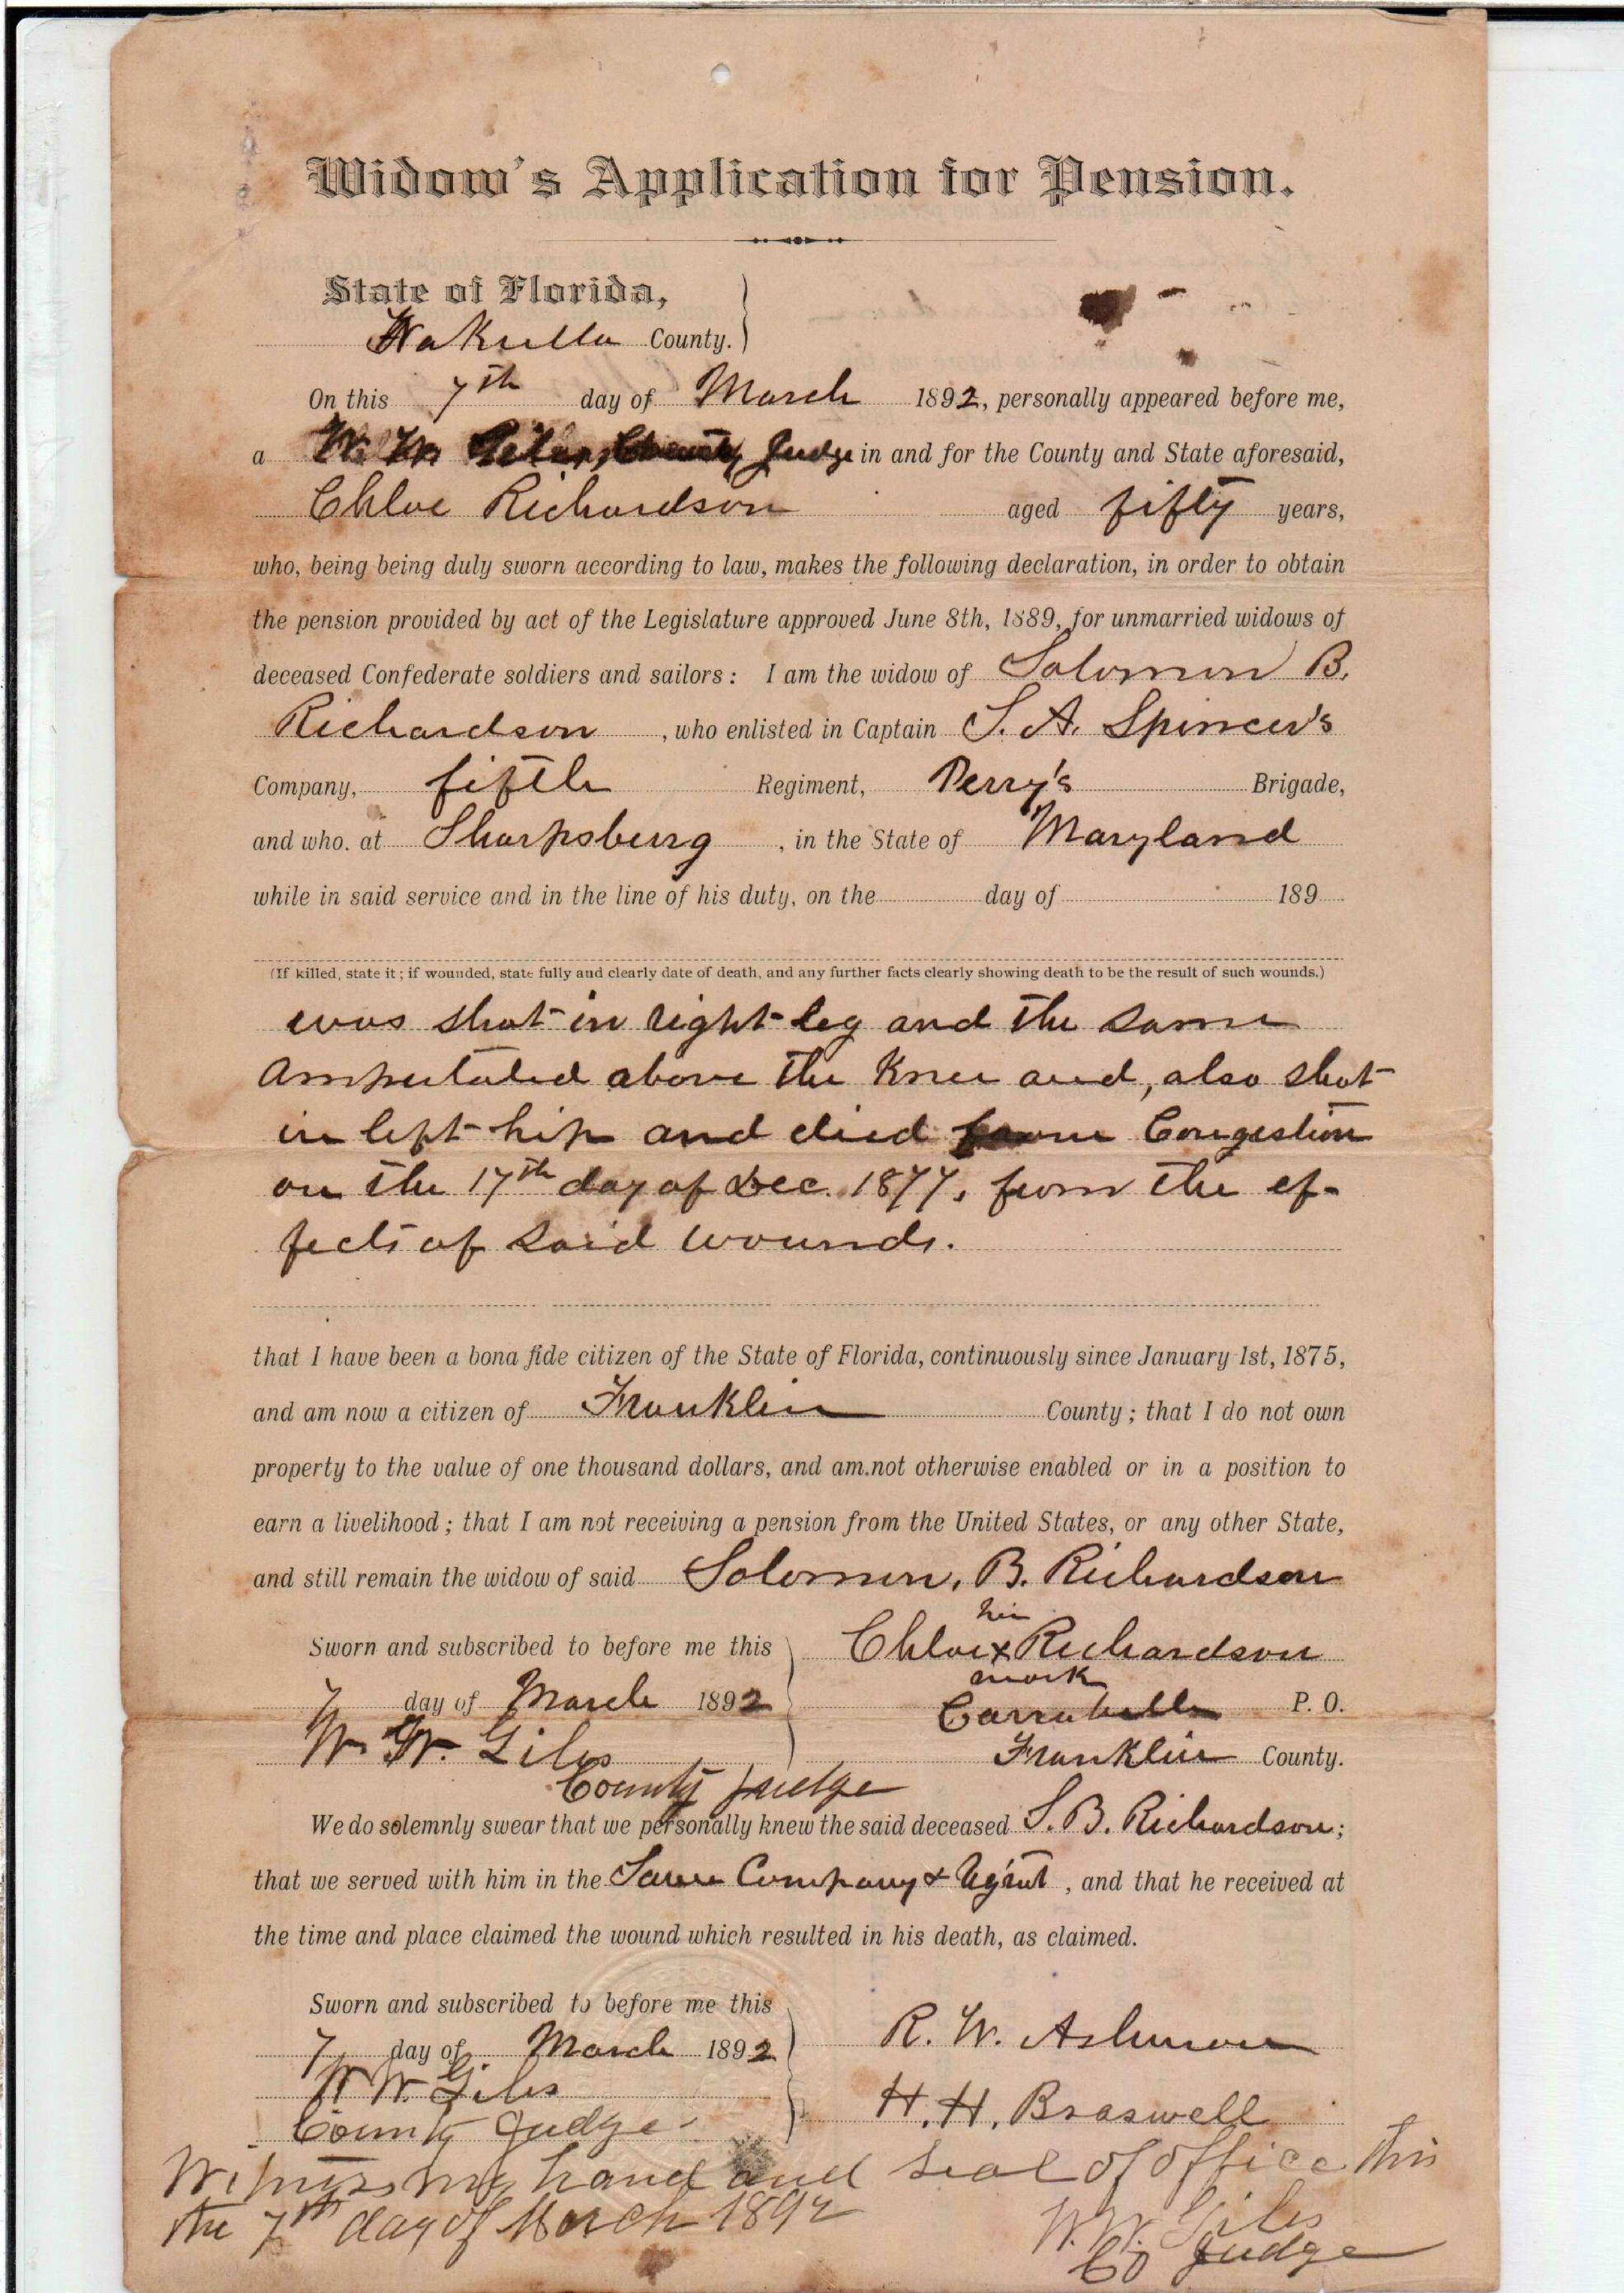 Widow's Application for Pension.
State of Florida,
Wakulla County.
On this 7th day of March 1892, personally appeared before me,
a W. W. Giles, County Judge in and for the County and State aforesaid,
Chloe Richardson aged fifty years,
who, being being duly sworn according to law, makes the following declaration, in order to obtain
the pension provided by act of the Legislature approved June 8th, 1889, for unmarried widows of
deceased Confederate soldiers and sailors: I am the widow of Solomon B.
Richardson, who enlisted in Captain S. A. Spincer's
Company, fifth Regiment, Perry's Brigade,
and who. at Sharpsburg, in the State of Maryland
while in said service and in the line of his duty, on the day of 189
(If killed, state it; if wounded, state fully and clearly date of death, and any further facts clearly showing death to be the result of such wounds.)
was shot in right leg and the same
amputated above the Knee and, also shot
in left hip and died from Congestion
on the 17th day of Dec. 1877, from the ef-
fects of said wounds.
that I have been a bona fide citizen of the State of Florida, continuously since January 1st, 1875,
and am now a citizen of Franklin County; that I do not own
property to the value of one thousand dollars, and am.not otherwise enabled or in a position to
earn a livelihood; that I am not receiving a pension from the United States, or any other State,
and still remain the widow of said Solomon, B. Richardson
her
Sworn and subscribed to before me this Chloe x Richardson
mark
7 day of March 1892 Carrabelle P. O.
W. W. Giles Franklin County.
County Judge
We do solemnly swear that we personally knew the said deceased S. B. Richardson;
that we served with him in the Same Company & Reg'mt, and that he received at
the time and place claimed the wound which resulted in his death, as claimed.
Sworn and subscribed to before me this
7 day of March 1892 R. W. Ashmore
W W. Giles
County Judge H. H. Braswell
Witness my hand and seal of office this
the 7th day of March 1892 W. W. Giles
Co Judge